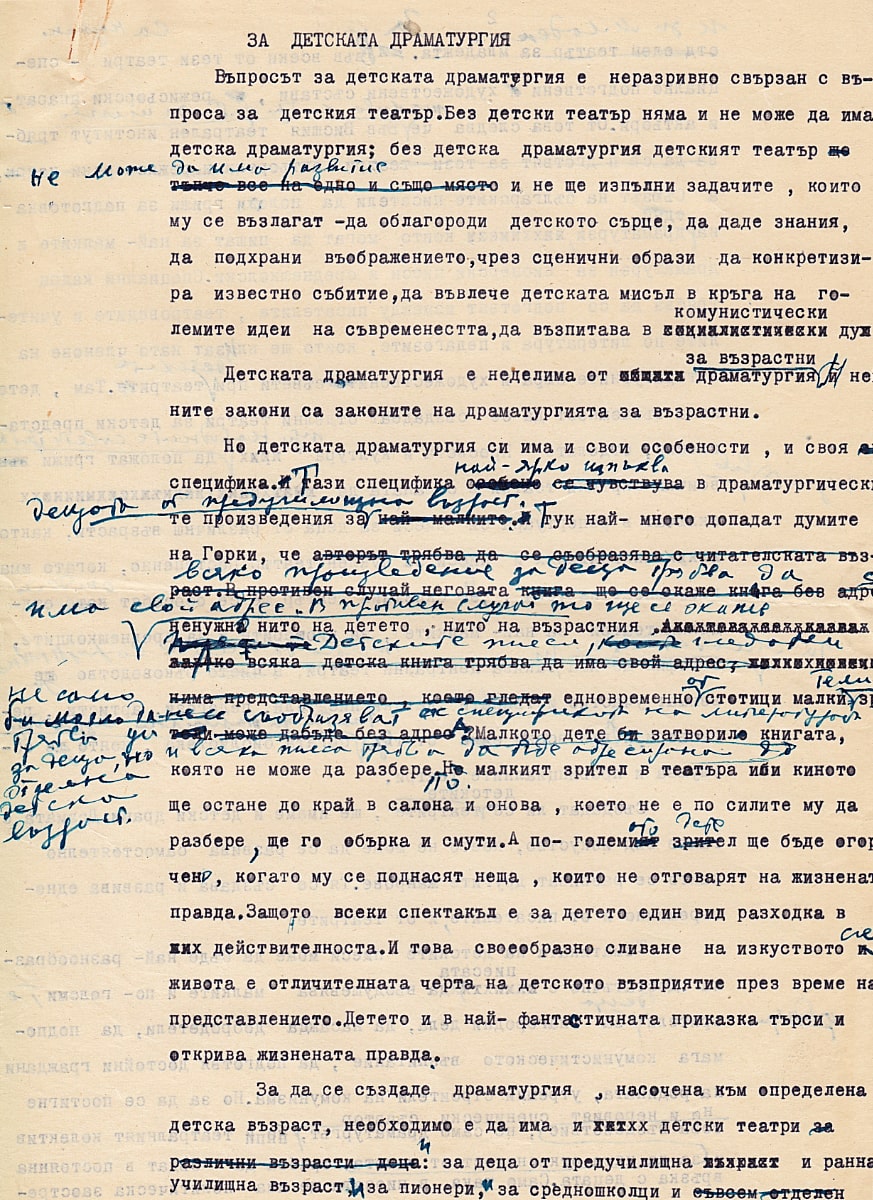 ЗА ДЕТСКАТА ДРАМАТУРГИЯ
Въпросът за детската драматургия е неразривно свързан с въ-
проса за детския театър.Без детски театър няма и не може да има
детска драматургия; без детска драматургия детският театър ще
не може да има развитие
тъпче все на едно и също място и не ще изпълни задачите , които
му се възлагат -да облагороди детското сърце, да даде знания,
да подхрани въображението,чрез сценични образи да конкретизи-
ра известно събитие,да въвлече детската мисъл в кръга на го-
комунистически
лемите идеи на съвременността,да възпитава в социалистически дух
за възрастни
Детската драматургия е неделима от общата драматургия и не
ните закони са законите на драматургията за възрастни.
Но детската драматургия си има и свои особености , и своя
най-ярко изпъква
специфика.И Тази специфика особено се чувствува в драматургически
децата от предучилищна възраст.
те произведения за най- малките.И Тук най- много допадат думите
на Горки, че авторът трябва да се съобразява с читателската въз-
всяко произведение за деца трябва да
раст.В противен случай неговата книга ще се окаже книга без адрес
има свой адрес. В противен случай то ще се окаже
ненужно нито на детето , нито на възрастния
Детските пиеси,
всяка детска книга трябва да има свой адрес,
не само
нима представлението , което гледат едновременно от стотици малки зрители
трябва да се съобразяват със спецификата на литературата
може да бъде без адрес ?Малкото дете би затворило книгата,
за деца, но и всяка пиеса трябва да бъде адресирана до
отделна
детска
възраст.
която не може да разбере.Но малкият зрител в театъра или киното
по
ще остане до край в салона и онова , което не е по силите му да
ото дете
разбере , ще го обърка и смути.А по- големият зрител ще бъде огор-
чено, когато му се поднасят неща , които не отговарят на жизнената
правда.Защото всеки спектакъл е за детето един вид разходка в
действителноста.И това своеобразно сливане на изкуството с
живота е отличителната черта на детското възприятие през време на
представлението.Детето и в най- фантастичната приказка търси и
открива жизнената правда.
За да се създаде драматургия , насочена към определена
детска възраст, необходимо е да има и детски театри за
различни възрасти деца: за деца от предучилищна възраст и ранна
училищна възраст, и за пионери, и за средношколци и съвсем отделен